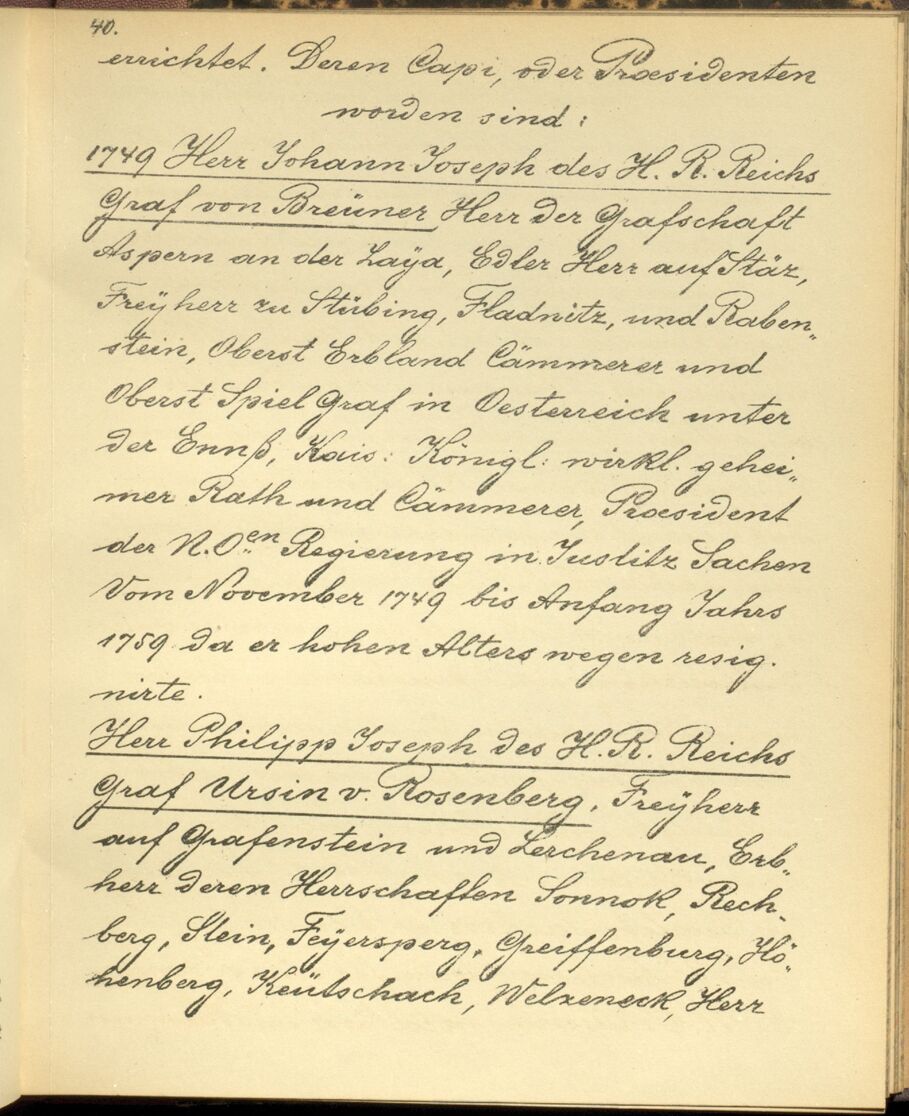 40.
errichtet. Deren Capi, oder Præsidenten
worden sind:
1749 Herr Johann Joseph des H. R. Reichs
Graf von Breüner Herr der Grafschaft
Aspern an der Zaÿa, Edler Herr auf Stäz,
Freÿherr zu Stübing, Fladnitz, und Raben„
stein, Oberst Erbland Cämmerer und
Oberst Spiel Graf in Oesterreich unter
der Ennß, Kais: Königl: wirkl. gehei„
mer Rath und Cämmerer, Præsident
der N.O:en Regierung in Justitz Sachen
Vom November 1749 bis Anfang Jahrs
1759 da er hohen Alters wegen resig.
nirte.
Herr Philipp Joseph des H. R. Reichs
Graf Ursin v. Rosenberg, Freÿherr
auf Grafenstein und Lerchenau, Erb„
herr deren Herrschaften Sonnok, Rech-
berg, Stein, Feÿersperg, Greiffenburg, Hö„
henberg, Keütschach, Welzeneck, Herr